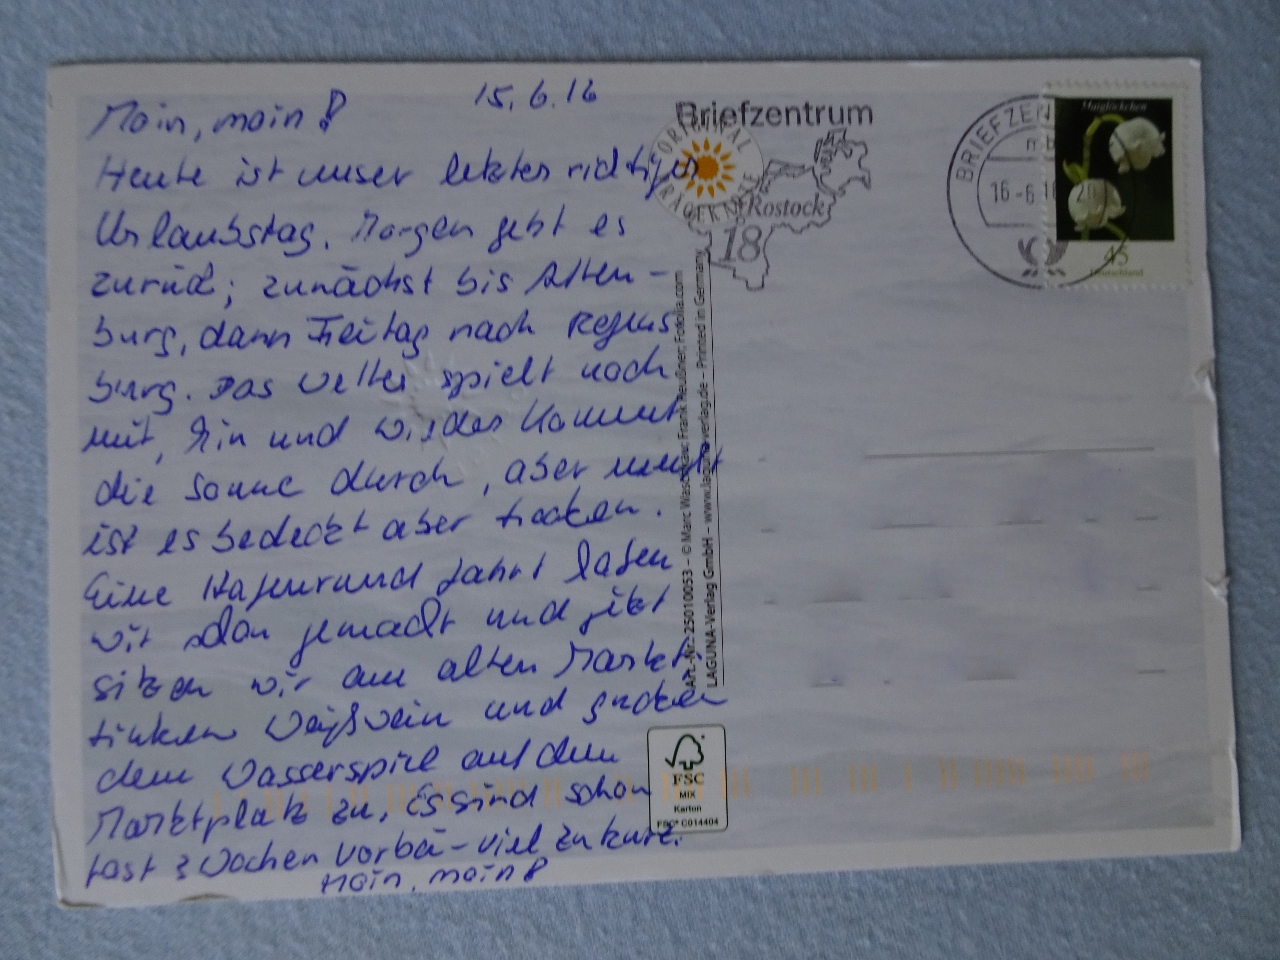 15.6.16
Moin, moin!
Heute ist unser letzter richtiger
Urlaubstag. Morgen geht es
zurück; zunächst bis Alten-
burg, dann Freitag nach Regens
burg. Das Wetter spielt noch
mit, hin und wieder kommt
die Sonne durch, aber meist
ist es bedeckt aber trocken.
Eine Hafenrundfahrt haben
wir schon gemacht und jetzt
sitzen wir am alten Markt,
trinken Weißwein und gucken
dem Wasserspiel auf dem
Marktplatz zu. Es sind schon
fast 3 Wochen vorbei - viel zu kurz.
Moin, moin!
Briefzentrum
ORIGINAL
Rostock
18
Art.-Nr.: 25010053 – © Marc Waschkau; Frank Reußner; Fotolia.com
LAGUNA-Verlag GmbH – www.laguna-verlag.de – Printed in Germany
FSC
MIX
Karton
FSC® C014404
BRIEFZEN
16-6.16
Maiglöckchen
45
Deutschland